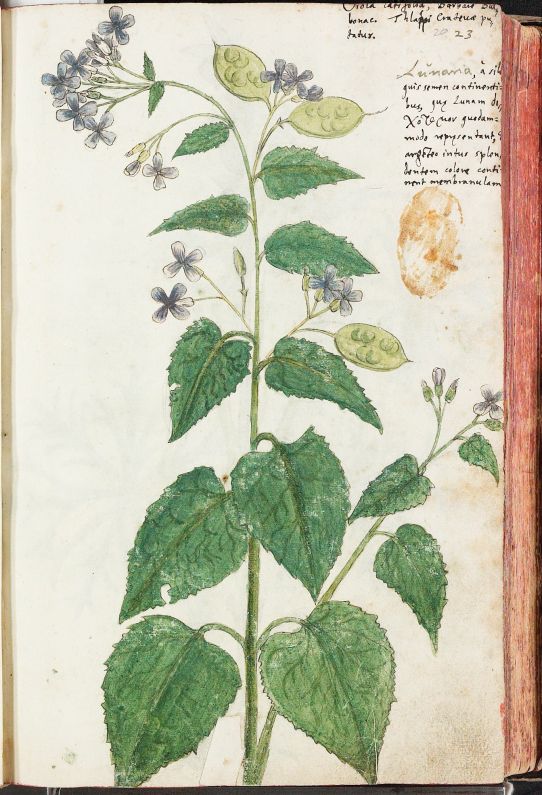 Viola latifolia, Barbaris Bul
bonac. Thlaspi Crateuæ pu,
tatur. 20 23
Lunaria, à sili
quis semen continenti:
bus, quæ Lunam
quodam:
modo repręsentant,
argẽteo intus splen,
dentem colore conti
nent membranulam